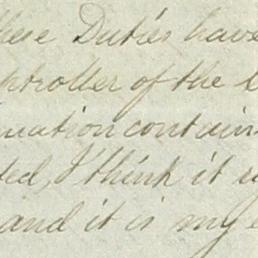 these Duties have
ptroller of the
uation contain
ted, I think it
and it is my